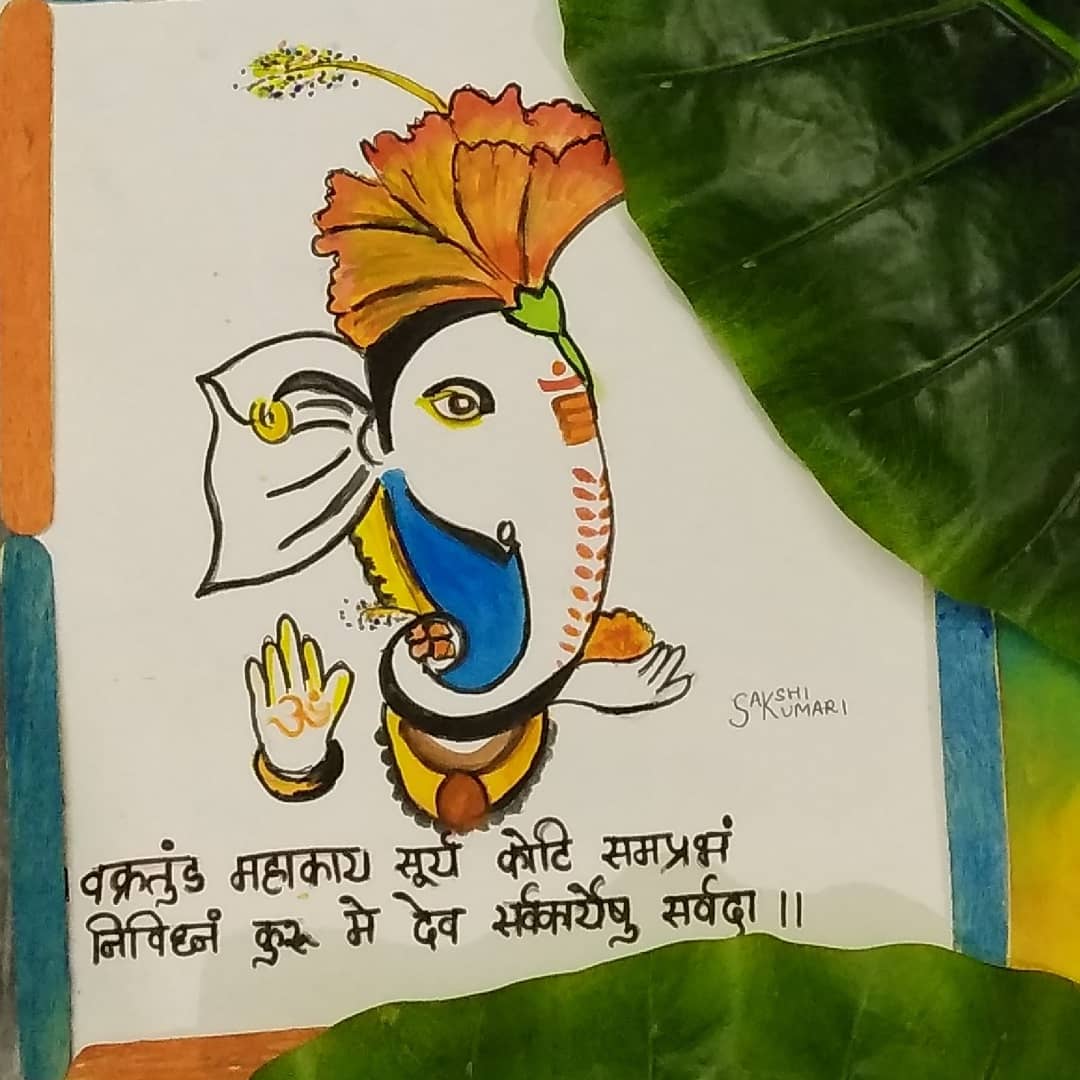 ॐ
SAKSHI
KUMARI
वक्रतुंड महाकाय सूर्य कोटि समप्रभं
निविघ्नं कुरू मे देव सर्वकार्येषु सर्वदा ।।